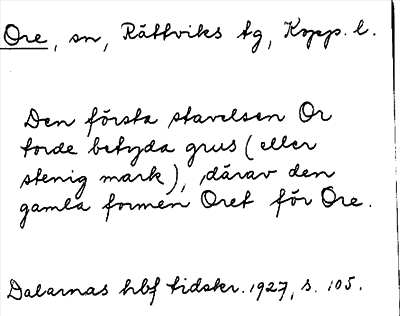 Ore, sn, Rättviks tg, Kopp. l.
Den första stavelsen Or
torde betyda grus (eller
stenig mark), därav den
gamla formen Oret för Ore.
Dalarnas hbf tidskr. 1927, s. 105.